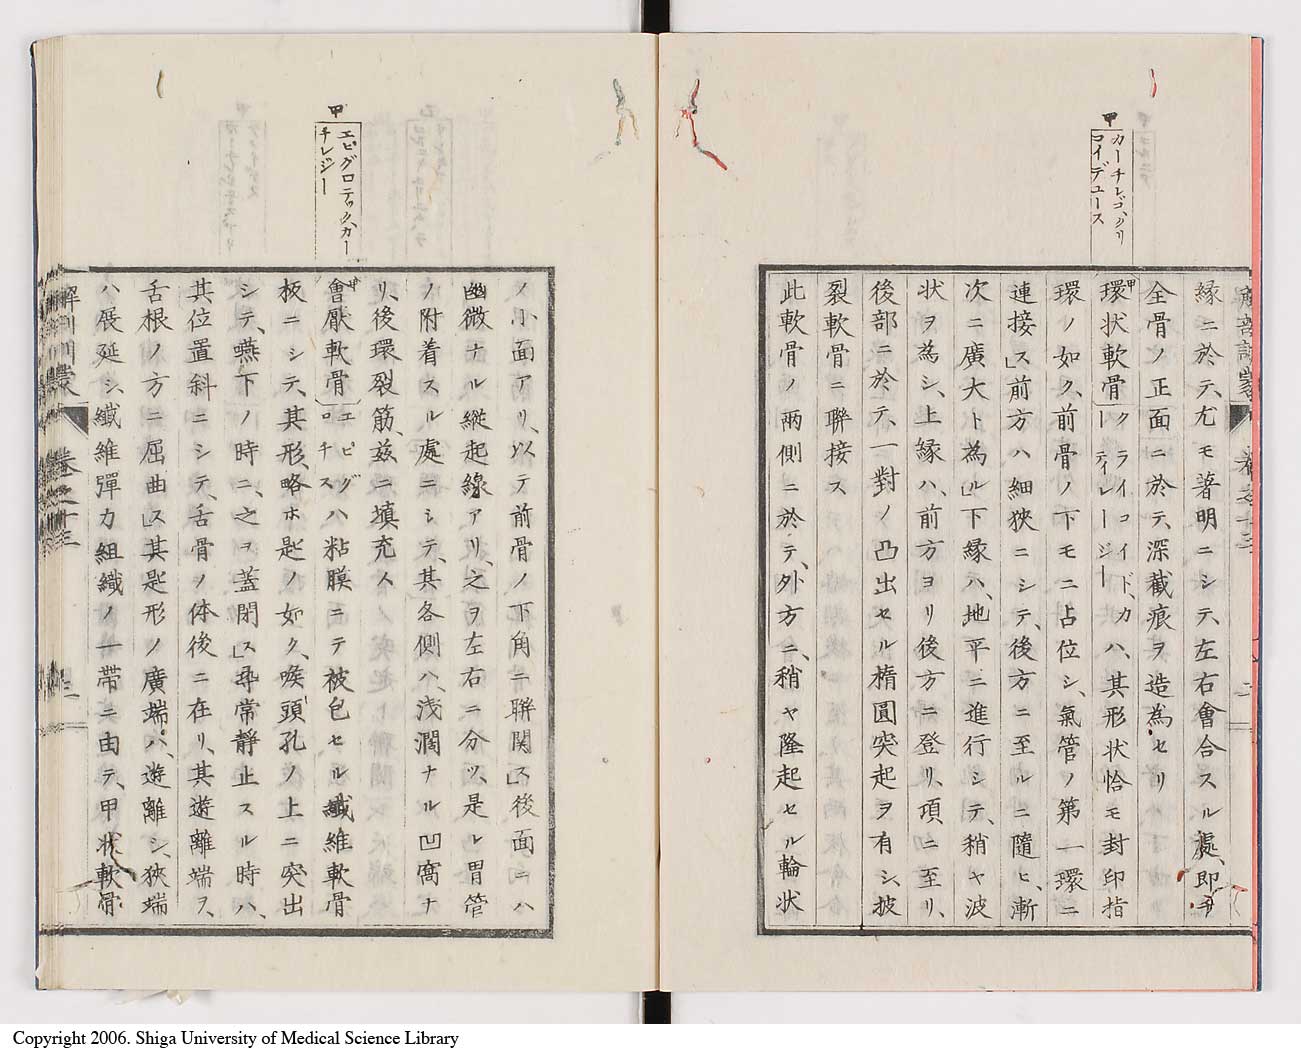 解剖訓蒙 卷之十三 二
甲
カーチレゴ、クリ
コイデユース
縁ニ於テ、尤モ著明ニシテ、左右會合スル處、即チ
全骨ノ正面ニ於テ、深截痕ヲ造為セリ
環状軟骨〔クライコイド、カーティレージー〕ハ、其形状恰モ封印指
環ノ如ク、前骨ノ下モニ占位シ、氣管ノ第一環ニ
連接ス」前方ハ細狹ニシテ、後方ニ至ルニ隨ヒ、漸
次ニ廣大ト為ル」下縁ハ、地平ニ進行シテ、稍ヤ波
状ヲ為シ、上縁ハ、前方ヨリ後方ニ登リ、項ニ至リ、
後部ニ於テ、一對ノ凸出セル楕圓突起ヲ有シ、披
裂軟骨ニ聯接ス
此軟骨ノ兩側ニ於テ、外方ニ、稍ヤ隆起セル輪状
甲
エピグロティックス、カー
チレジー
ノ小面アリ、以テ前骨ノ下角ニ聯関ス」後面ニハ
幽微ナル縦起線アリ、之ヲ左右ニ分ツ、是レ胃管
ノ附着スル處ニシテ、其各側ハ、浅濶ナル凹窩ナ
リ、後環裂筋、茲ニ填充ス
會厭軟骨〔エピグロチス〕ハ粘膜ニテ被包セル纎維軟骨
板ニシテ、其形、略ホ匙ノ如ク、喉頭孔ノ上ニ突出
シテ、嚥下ノ時ニ、之ヲ蓋閉ス」尋常靜止スル時ハ、
其位置斜ニシテ、舌骨ノ体後ニ在リ、其遊離端ヲ、
舌根ノ方ニ屈曲ス」其匙形ノ廣端ハ、遊離シ、狹端
ハ展延シ、纎維彈力組織ノ一帶ニ由テ、甲状軟骨
解剖訓蒙 卷之十三 三
Copyright 2006. Shiga University of Medical Science Library